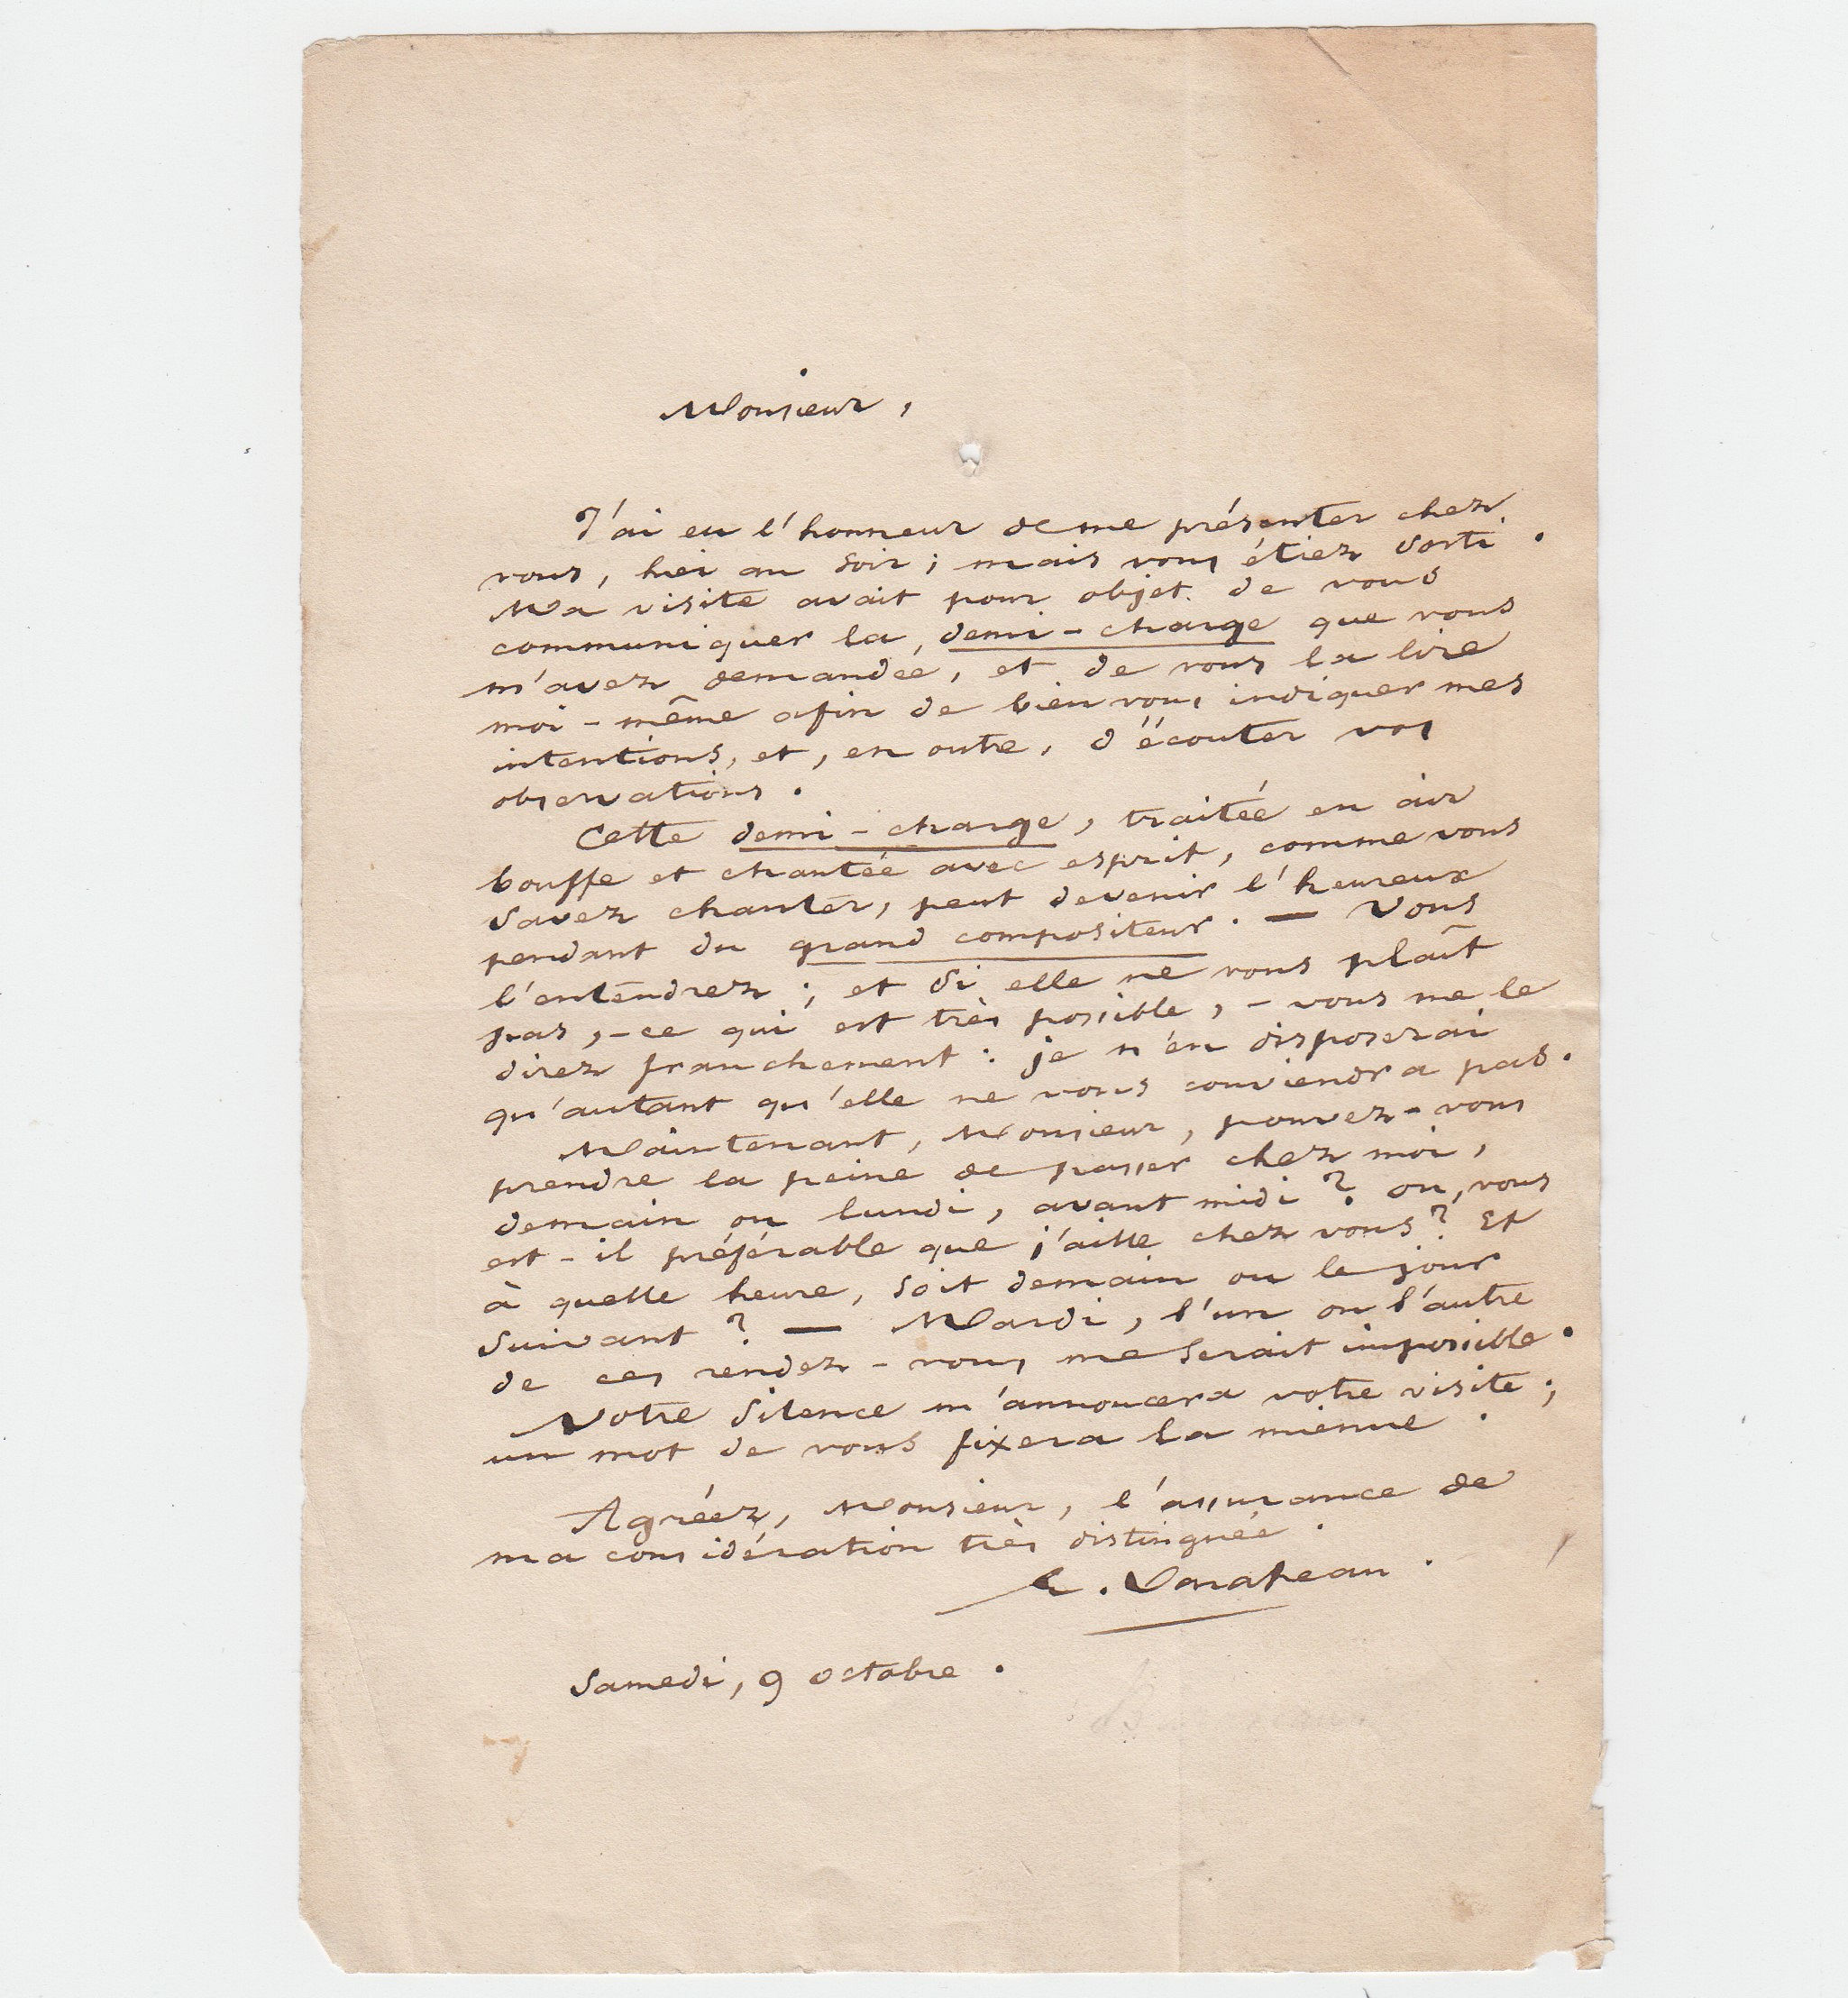 Monsieur,
J'ai eu l'honneur de me présenter chez
vous, hier au soir ; mais vous étiez sorti.
Ma visite avait pour objet de vous
communiquer la demi-charge que vous
m'avez demandée, et de vous la lire
moi-même afin de bien vous indiquer mes
intentions, et, en outre, d'écouter vos
observations.
Cette demi-charge, traitée en air
bouffe et chantée avec esprit, comme vous
savez chanter, peut devenir l'heureux
pendant du grand compositeur. — Vous
l'entendrez ; et si elle ne vous plaît
pas, - ce qui est très possible, - vous me le
direz franchement : je n'en disposerai
qu'autant qu'elle ne vous conviendra pas.
Maintenant, Monsieur, pouvez-vous
prendre la peine de passer chez moi,
demain ou lundi, avant midi ? ou, vous
est-il préférable que j'aille chez vous ? Et
à quelle heure, soit demain ou le jour
suivant ? — Mardi, l'un ou l'autre
de ces rendez-vous me serait impossible.
Votre silence m'annoncera votre visite ;
un mot de vous fixera la mienne.
Agréez, Monsieur, l'assurance de
ma considération très distinguée.
Samedi, 9 octobre.